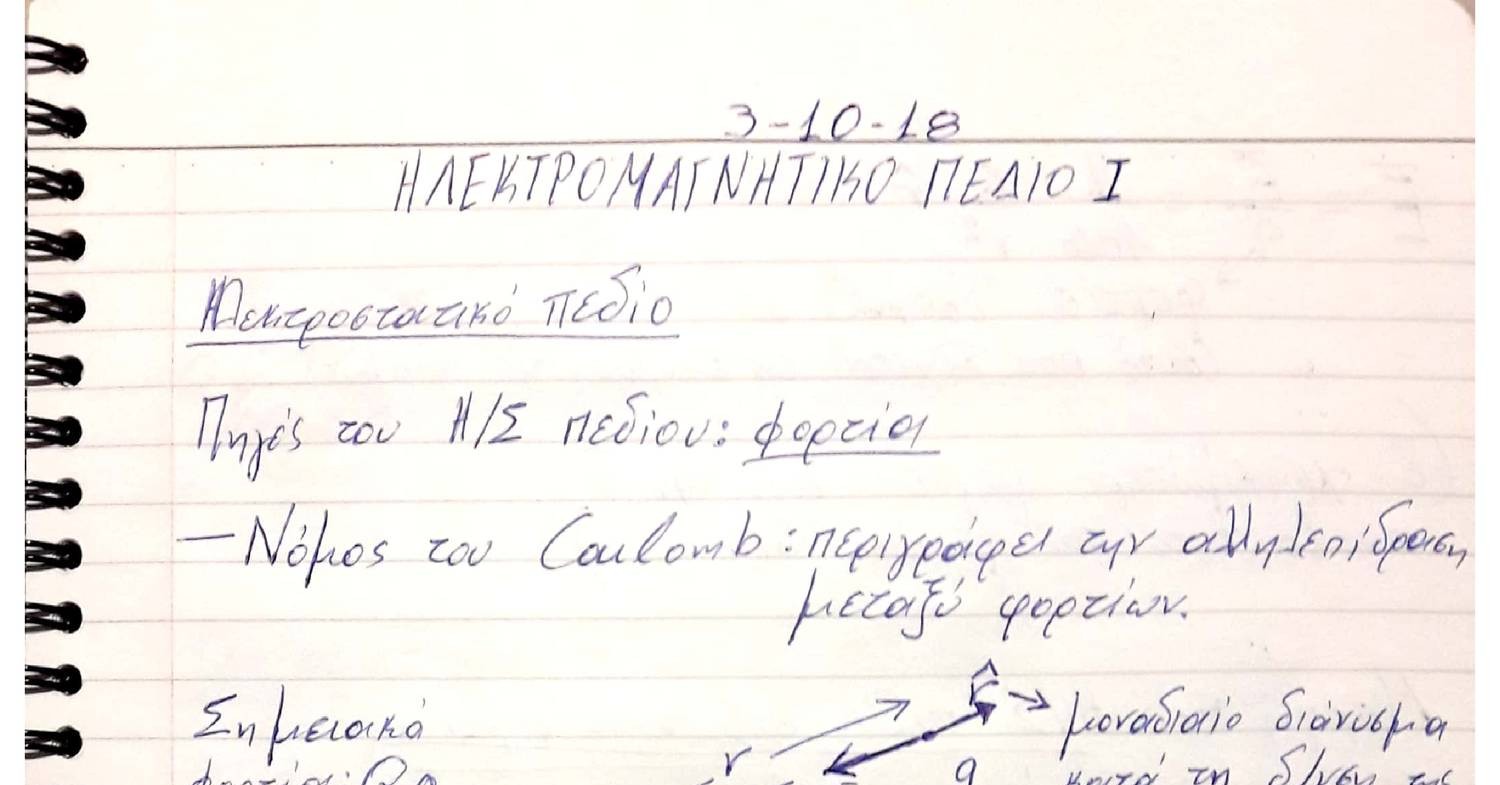 3-10-18
ΗΛΕΚΤΡΟΜΑΓΝΗΤΙΚΟ ΠΕΔΙΟ Ι
Ηλεκτροστατικό πεδίο
Πηγές του Η/Σ πεδίου: φορτία
— Νόμος του Coulomb: περιγράφει την αλληλεπίδραση
μεταξύ φορτίων.
Σημειακά r r̂ → μοναδιαίο διάνυσμα
φορτία: Q q κατά τη δ/νση της